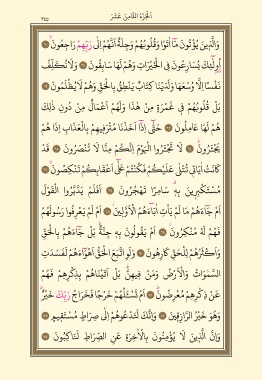 الجزء الثامن عشر
٣٤٥
وَالَّذِينَ يُؤْتُونَ مَا آتَوْا وَقُلُوبُهُمْ وَجِلَةٌ أَنَّهُمْ إِلَى رَبِّهِمْ رَاجِعُونَ
أُولَٰئِكَ يُسَارِعُونَ فِي الْخَيْرَاتِ وَهُمْ لَهَا سَابِقُونَ وَلَا نُكَلِّفُ
نَفْسًا إِلَّا وُسْعَهَا وَلَدَيْنَا كِتَابٌ يَنْطِقُ بِالْحَقِّ وَهُمْ لَا يُظْلَمُونَ
بَلْ قُلُوبُهُمْ فِي غَمْرَةٍ مِنْ هَٰذَا وَلَهُمْ أَعْمَالٌ مِنْ دُونِ ذَٰلِكَ
هُمْ لَهَا عَامِلُونَ حَتَّىٰ إِذَا أَخَذْنَا مُتْرَفِيهِمْ بِالْعَذَابِ إِذَا هُمْ
يَجْأَرُونَ لَا تَجْأَرُوا الْيَوْمَ إِنَّكُمْ مِنَّا لَا تُنْصَرُونَ قَدْ
كَانَتْ آيَاتِي تُتْلَىٰ عَلَيْكُمْ فَكُنْتُمْ عَلَىٰ أَعْقَابِكُمْ تَنْكِصُونَ
مُسْتَكْبِرِينَ بِهِ سَامِرًا تَهْجُرُونَ أَفَلَمْ يَدَّبَّرُوا الْقَوْلَ
أَمْ جَاءَهُمْ مَا لَمْ يَأْتِ آبَاءَهُمُ الْأَوَّلِينَ أَمْ لَمْ يَعْرِفُوا رَسُولَهُمْ
فَهُمْ لَهُ مُنْكِرُونَ أَمْ يَقُولُونَ بِهِ جِنَّةٌ بَلْ جَاءَهُمْ بِالْحَقِّ
وَأَكْثَرُهُمْ لِلْحَقِّ كَارِهُونَ وَلَوِ اتَّبَعَ الْحَقُّ أَهْوَاءَهُمْ لَفَسَدَتِ
السَّمٰوَاتُ وَالْأَرْضُ وَمَنْ فِيهِنَّ بَلْ أَتَيْنَاهُمْ بِذِكْرِهِمْ فَهُمْ
عَنْ ذِكْرِهِمْ مُعْرِضُونَ أَمْ تَسْأَلُهُمْ خَرْجًا فَخَرَاجُ رَبِّكَ خَيْرٌ
وَهُوَ خَيْرُ الرَّازِقِينَ وَإِنَّكَ لَتَدْعُوهُمْ إِلَىٰ صِرَاطٍ مُسْتَقِيمٍ
وَإِنَّ الَّذِينَ لَا يُؤْمِنُونَ بِالْآخِرَةِ عَنِ الصِّرَاطِ لَنَاكِبُونَ